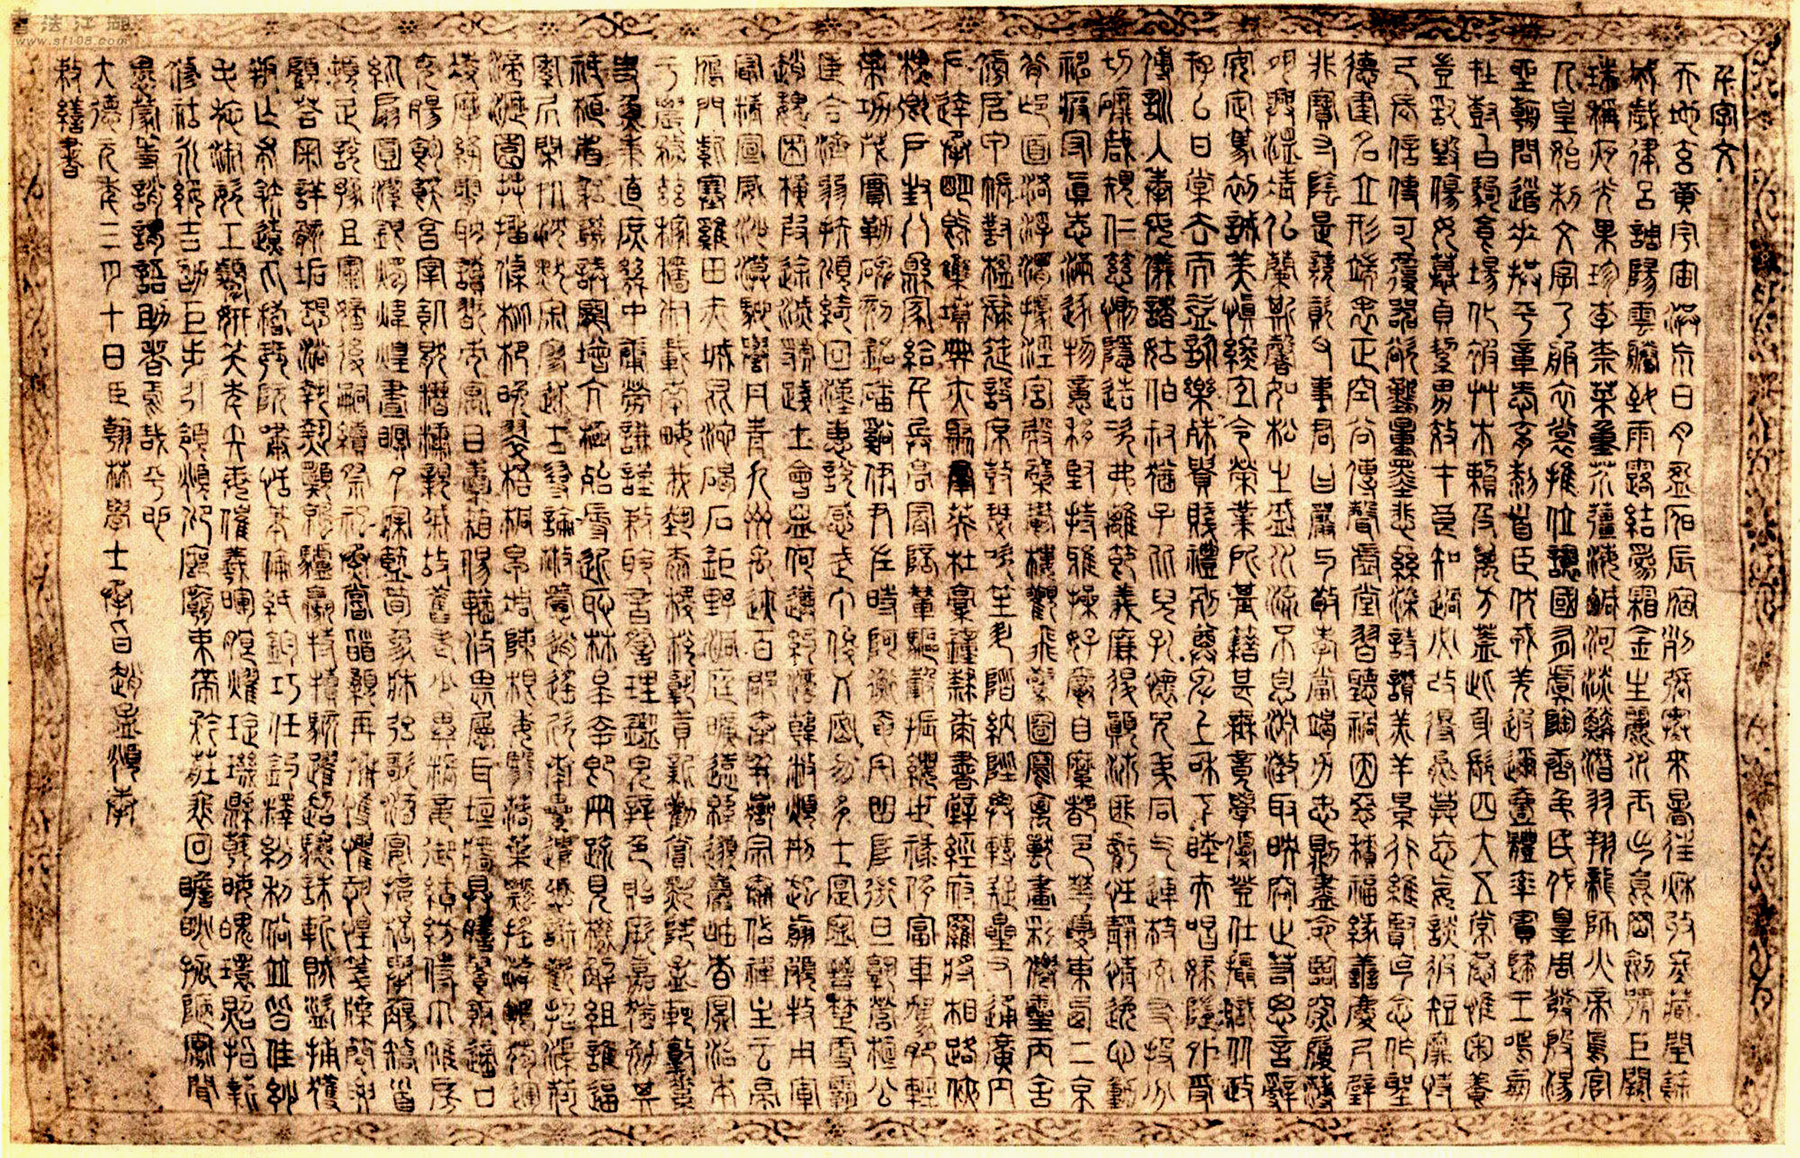 千字文
天地玄黃宇宙洪荒日月盈昃辰宿列張寒來暑往秋收冬藏閏餘
成歲律呂調陽雲騰致雨露結為霜金生麗水玉出崑岡劍號巨闕
珠稱夜光果珍李柰菜重芥薑海鹹河淡鱗潛羽翔龍師火帝鳥官
人皇始制文字乃服衣裳推位讓國有虞陶唐弔民伐罪周發殷湯
坐朝問道垂拱平章愛育黎首臣伏戎羌遐邇壹體率賓歸王鳴鳳
在樹白駒食場化被草木賴及萬方蓋此身髮四大五常恭惟鞠養
豈敢毀傷女慕貞絜男效才良知過必改得能莫忘罔談彼短靡恃
己長信使可覆器欲難量墨悲絲染詩讚羔羊景行維賢克念作聖
德建名立形端表正空谷傳聲虛堂習聽禍因惡積福緣善慶尺璧
非寶寸陰是競資父事君曰嚴與敬孝當竭力忠則盡命臨深履薄
夙興溫凊似蘭斯馨如松之盛川流不息淵澄取映容止若思言辭
安定篤初誠美慎終宜令榮業所基籍甚無竟學優登仕攝職從政
存以甘棠去而益詠樂殊貴賤禮別尊卑上和下睦夫唱婦隨外受
傅訓入奉母儀諸姑伯叔猶子比兒孔懷兄弟同氣連枝交友投分
切磨箴規仁慈惻隱造次弗離節義廉退顛沛匪虧性靜情逸心動
神疲守真志滿逐物意移堅持雅操好爵自縻都邑華夏東西二京
背邙面洛浮渭據涇宮殿盤鬱樓觀飛驚圖寫禽獸畫彩仙靈丙舍
傍啟甲帳對楹肆筵設席鼓瑟吹笙升階納陛弁轉疑星右通廣內
左達承明既集墳典亦聚群英杜稾鍾隸漆書壁經府羅將相路俠
槐卿戶封八縣家給千兵高冠陪輦驅轂振纓世祿侈富車駕肥輕
策功茂實勒碑刻銘磻溪伊尹佐時阿衡奄宅曲阜微旦孰營桓公
匡合濟弱扶傾綺回漢惠說感武丁俊乂密勿多士寔寧晉楚更霸
趙魏困橫假途滅虢踐土會盟何遵約法韓弊煩刑起翦頗牧用軍
最精宣威沙漠馳譽丹青九州禹跡百郡秦并嶽宗恆岱禪主云亭
雁門紫塞雞田赤城昆池碣石鉅野洞庭曠遠綿邈巖岫杳冥治本
于農務茲稼穡俶載南畝我藝黍稷稅熟貢新勸賞黜陟孟軻敦素
史魚秉直庶幾中庸勞謙謹敕聆音察理鑑貌辨色貽厥嘉猷勉其
祗植省躬譏誡寵增亢極殆辱近恥林皋幸即兩疏見機解組誰逼
索居閑處沈默寂寥求古尋論散慮逍遙欣奏累遣慼謝歡招渠荷
的歷園莽抽條枇杷晚翠梧桐早凋陳根委翳落葉飄搖游鵾獨運
凌摩絳霄耽讀翫市寓目囊箱易輶攸畏屬耳垣牆具膳餐飯適口
充腸飽飫烹宰飢厭糟糠親戚故舊老少異糧妾御績紡侍巾帷房
紈扇圓潔銀燭煒煌晝眠夕寐藍筍象床弦歌酒宴接杯舉觴矯手
頓足悅豫且康嫡後嗣續祭祀蒸嘗稽顙再拜悚懼恐惶牋牒簡要
顧答審詳骸垢想浴執熱願涼驢騾犢特駭躍超驤誅斬賊盜捕獲
叛亡布射遼丸嵇琴阮嘯恬筆倫紙鈞巧任釣釋紛利俗並皆佳妙
毛施淑姿工顰妍笑年矢每催羲暉朗耀璇璣懸斡晦魄環照指薪
修祜永綏吉劭矩步引領俯仰廊廟束帶矜莊徘徊瞻眺孤陋寡聞
愚蒙等誚謂語助者焉哉乎也
大德元年二月十日臣翰林學士承旨趙孟頫奉
敕繕書
書法江湖
www.sf108.com